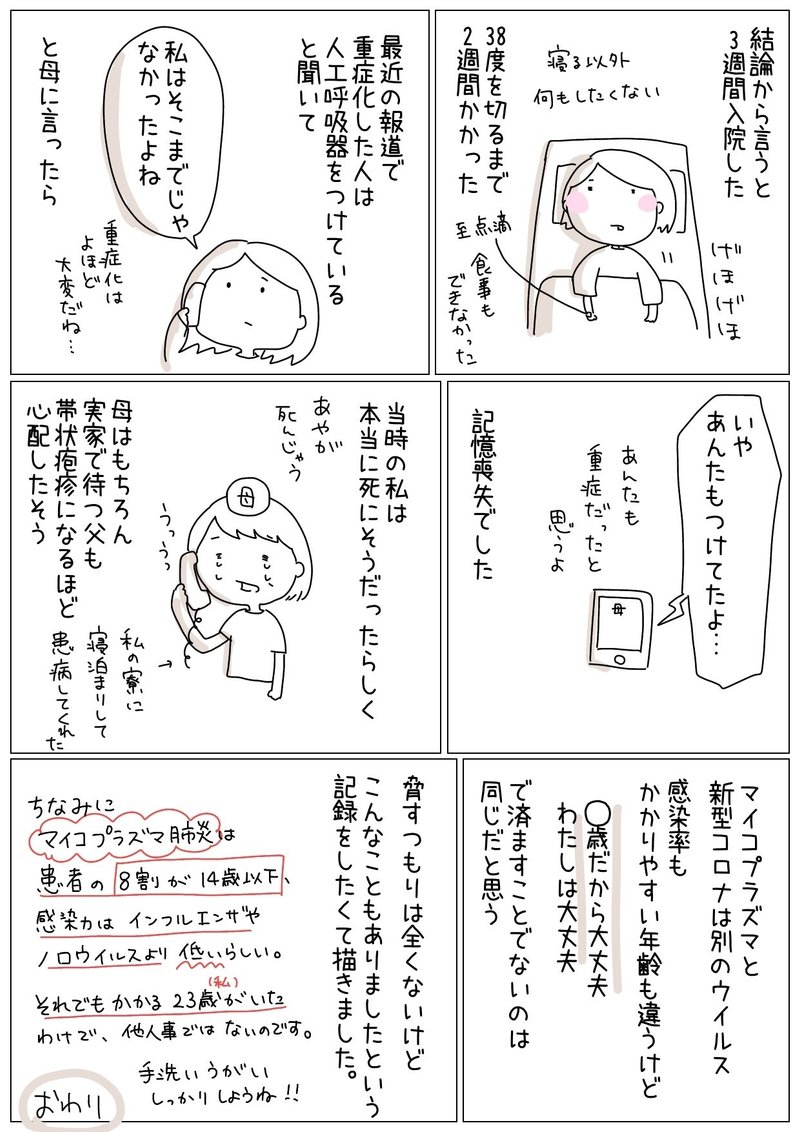 結論から言うと
3週間入院した
寝る以外
何もしたくない
38度を切るまで
2週間かかった
至点滴
食事も
できなかった
げほげほ
最近の報道で
重症化した人は
人工呼吸器をつけている
と聞いて
私はそこまでじゃ
なかったよね
と母に言ったら
重症化は
よほど
大変だね…
いや
あんたもつけてたよ…
母
あんたも
重症だったと
思うよ
記憶喪失でした
当時の私は
本当に死にそうだったらしく
あやが
死んじゃう
母
うっうっ
母はもちろん
実家で待つ父も
帯状疱疹になるほど
心配したそう
私の寮に
寝泊まりして
患病してくれた
マイコプラズマと
新型コロナは別のウイルス
感染率も
かかりやすい年齢も違うけど
〇歳だから大丈夫
わたしは大丈夫
で済ますことでないのは
同じだと思う
脅すつもりは全くないけど
こんなこともありましたという
記録をしたくて描きました。
ちなみに
マイコプラズマ肺炎は
患者の8割が14歳以下、
感染力はインフルエンザや
ノロウイルスより低いらしい。
(私)
それでもかかる23歳がいた
わけで、他人事ではないのです。
手洗いうがい
しっかりしようね!!
おわり